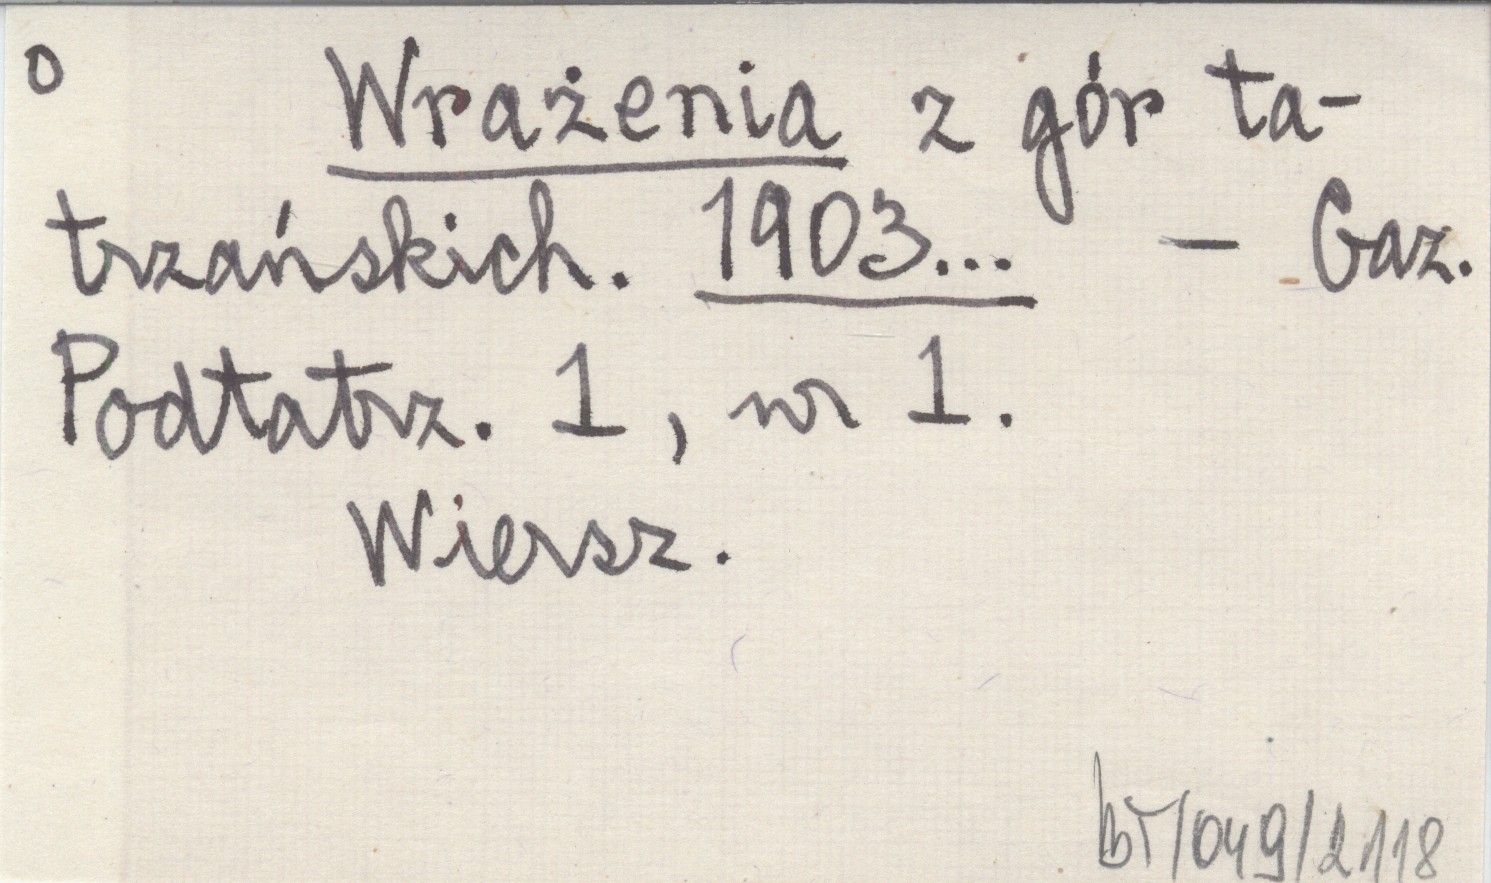 o Wrażenia z gór ta-
trzańskich. 1903... – Gaz.
Podtatrz. 1, nr 1.
Wiersz.
bT/049/2118